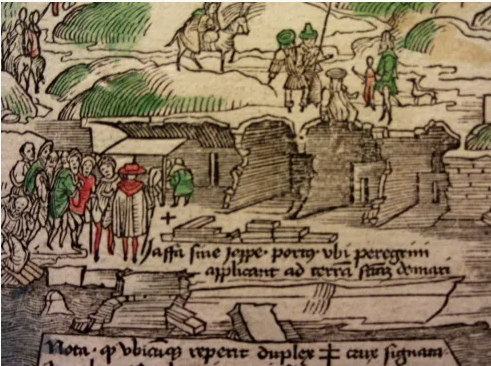 Jaffa siue Joppe · portꝰ vbi peregrini
applicant ad terrā sctām demari
Nota · ꝙ vbicūqꝫ reperit duplex ‡ crux signata